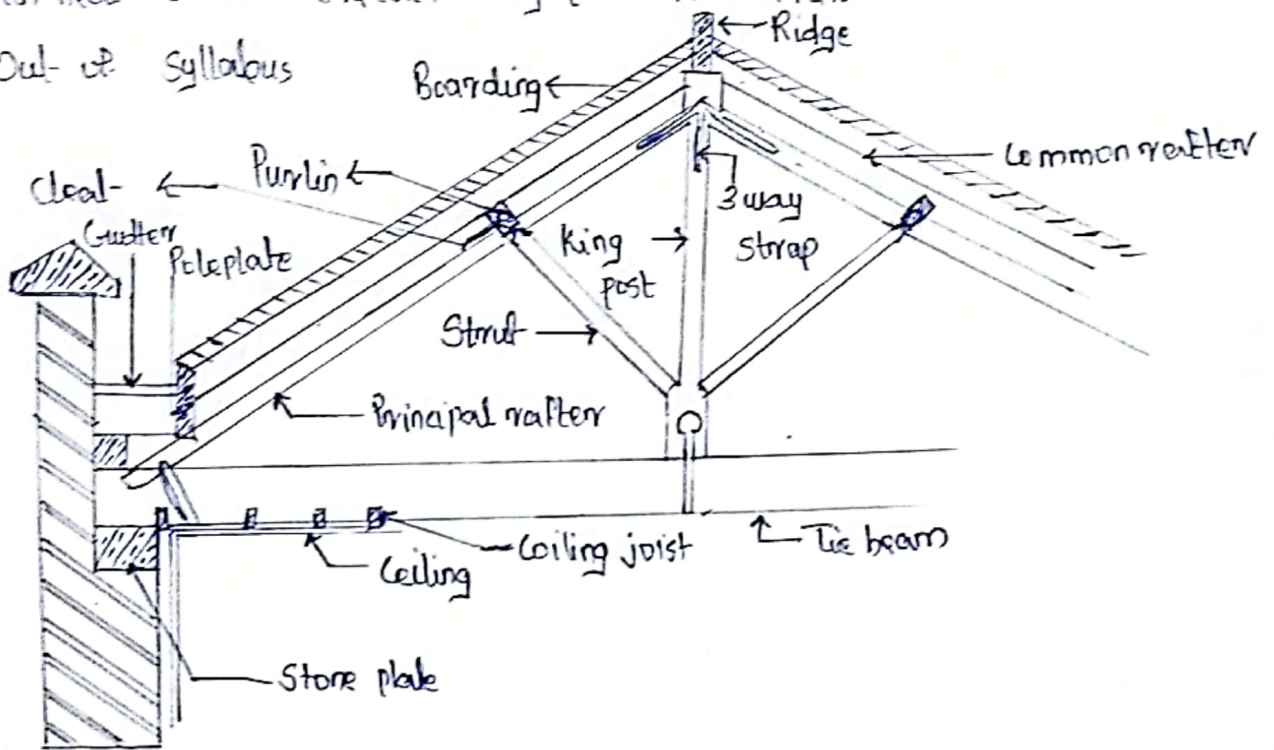 Out of Syllabus
Ridge
Boarding
Common rafter
Purlin
Cleat
3 way
strap
Gutter
Poleplate
King
post
Strut
Principal rafter
Ceiling joist
Tie beam
Ceiling
Stone plate